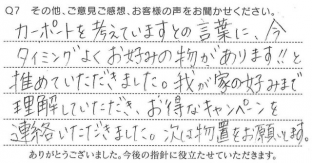 Q7 その他、ご意見ご感想、お客様の声をお聞かせください。
カーポートを考えていますとの言葉に、今
タイミングよくお好みの物があります!!と
推めていただきました。我が家の好みまで
理解していただき、お得なキャンペーンを
ご連絡いただきました。次は物置をお願いします。
ありがとうございました。今後の指針に役立たせていただきます。